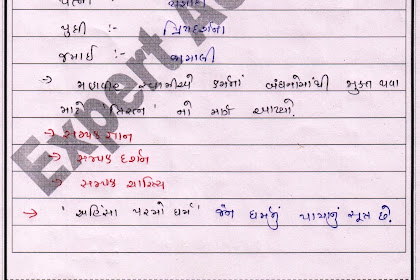 પુત્રી :- પ્રિયદર્શના
જમાઈ :- જમાલી
→ મહાવીર સ્વામીએ કર્મનાં બંધનોમાંથી મુક્ત થવા
માટે 'ત્રિરત્ન' નો માર્ગ આપ્યો.
→ સમ્યક જ્ઞાન
→ સમ્યક દર્શન
→ સમ્યક ચારિત્ય
→ 'અહિંસા પરમો ધર્મ' જૈન ધર્મનું પાયાનું સૂત્ર છે.
Expert Ac